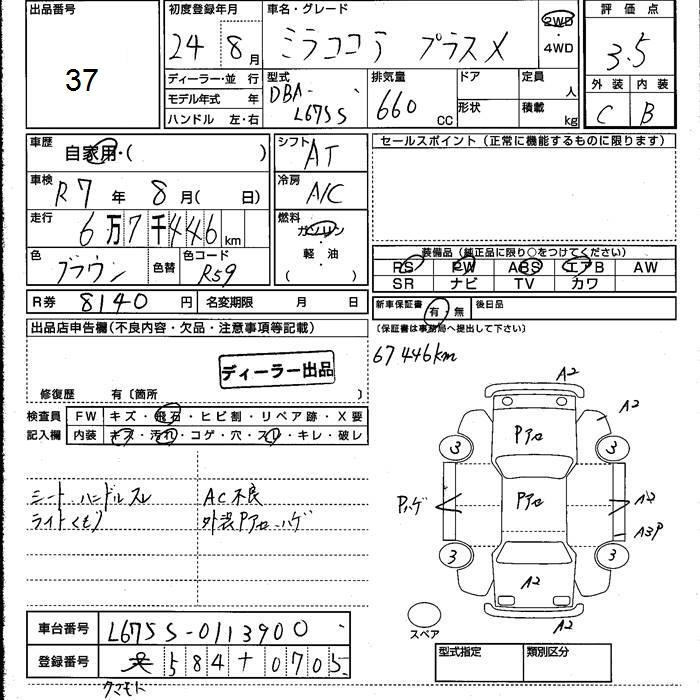 出品番号
37
初度登録年月
24 8月
車名・グレード
ミラココア プラスX
2WD
・
4WD
評価点
3.5
外装 内装
C B
ディーラー・並行
モデル年式 年
ハンドル 左・右
型式
DBA-
L675S
排気量
660
CC
ドア
形状
定員
人
積載
kg
車歴
自家用・( )
シフト
AT
車検
R7年 8月( 日)
冷房
A/C
走行
6万7千446km
燃料
ガソリン
・
軽・油
( )
色
ブラウン
色替
色コード
R59
R券 8140 円 名変期限 月 日
セールスポイント (正常に機能するものに限ります)
装備品(純正品に限り○をつけてください)
RS PW ABS エアB AW
SR ナビ TV カワ
新車保証書 有・無 後日品
(保証書は事務局へ提出して下さい)
出品店申告欄(不良内容・欠品・注意事項等記載)
ディーラー出品
修復歴 有〔箇所 〕
67446km
検査員
記入欄
FW キズ・飛石・ヒビ割・リペア跡・X要
内装 キズ・汚れ・コゲ・穴・スレ・キレ・破レ
シート、ハンドルスレ
ライトくもり
AC不良
外装Pアセ、ハゲ
A2
A2
Pアセ
3 3
Pハゲ
Pアセ
A2
A3P
3 3
A2
A2
スペア
車台番号 L675S-0113900
登録番号 584 + 0705
クマモト
型式指定 類別区分